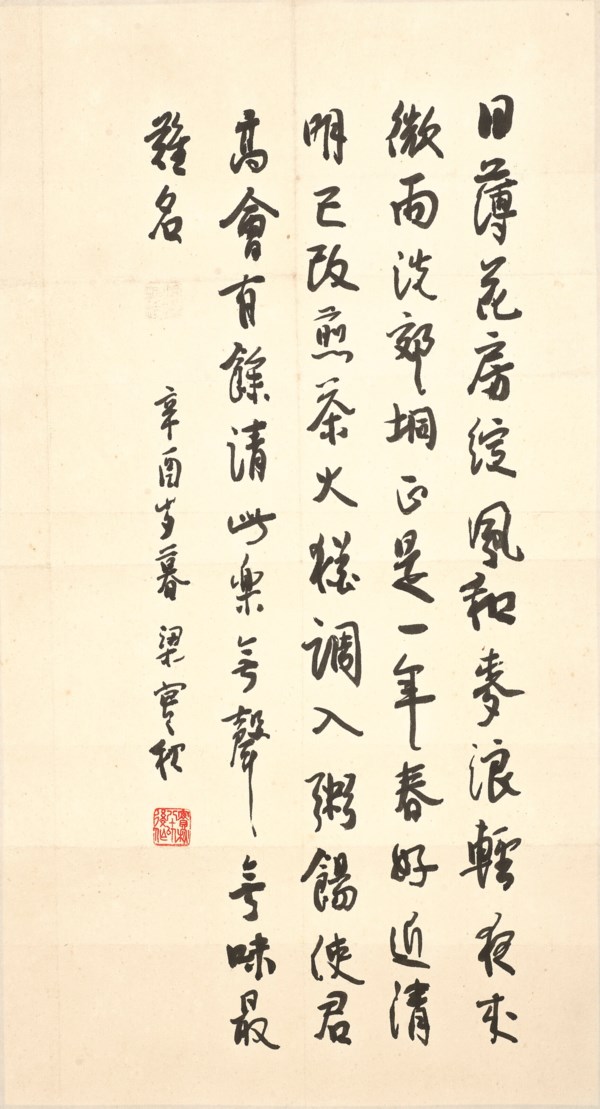 日薄花房綻風和麥浪輕夜來
微雨洗郊坰正是一年春好近清
明已改煎茶火猶調入粥餳使君
高會有餘清此樂無聲無味最
難名
辛酉歲暮 梁實秋